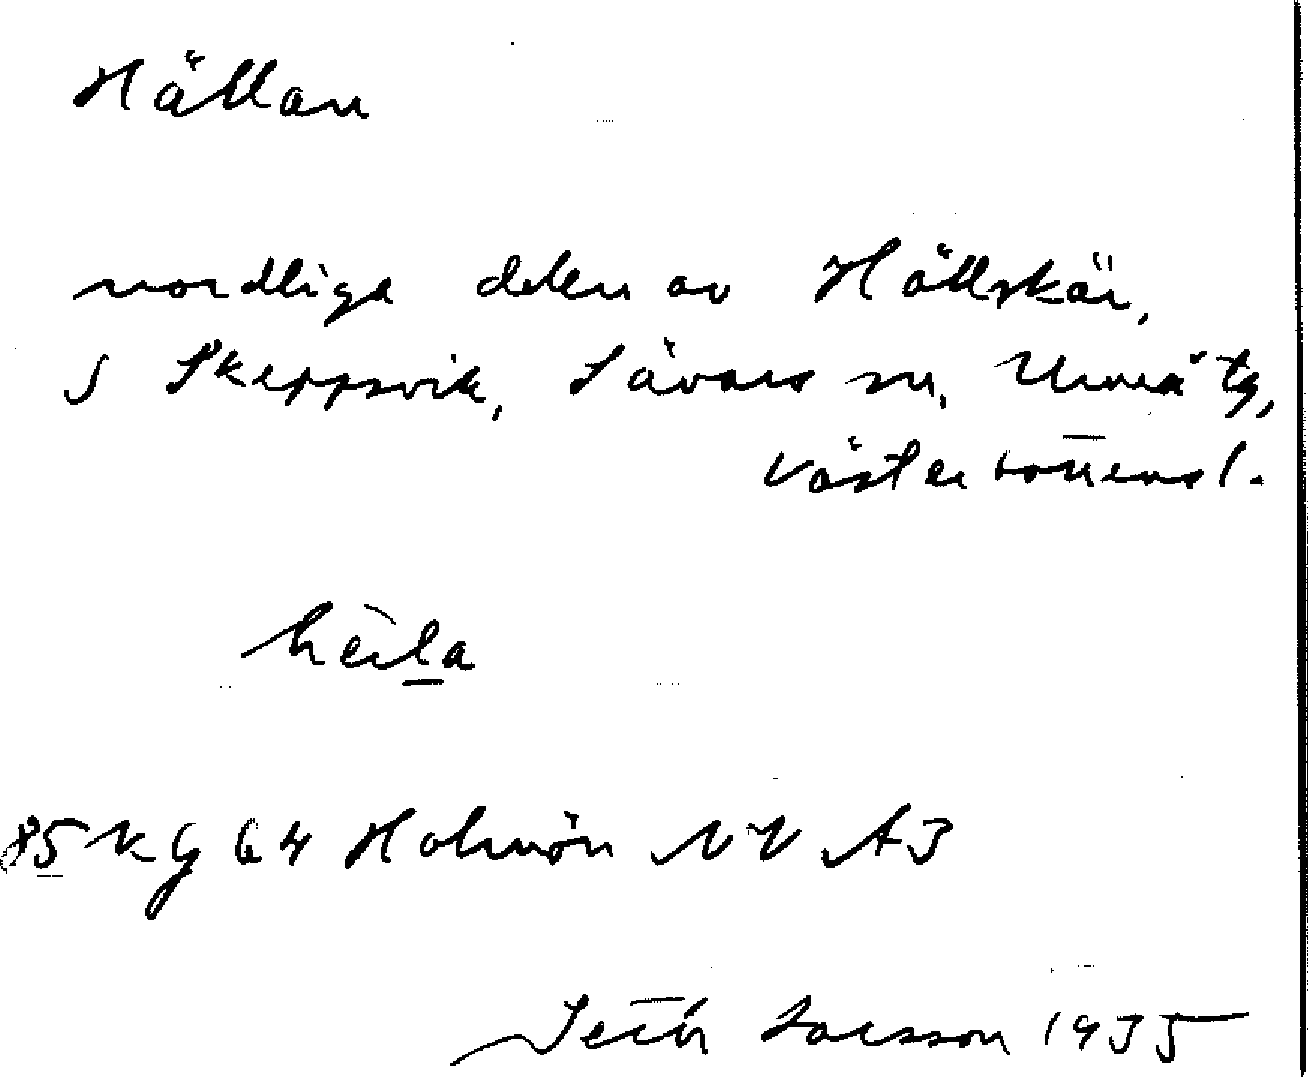 Hällan
nordliga delen av Hällskär,
S Skeppsvik, Sävars sn, Umeå tg,
Västerbottensl.
85 kg 64 Holmön NV A3
Larsson 1935